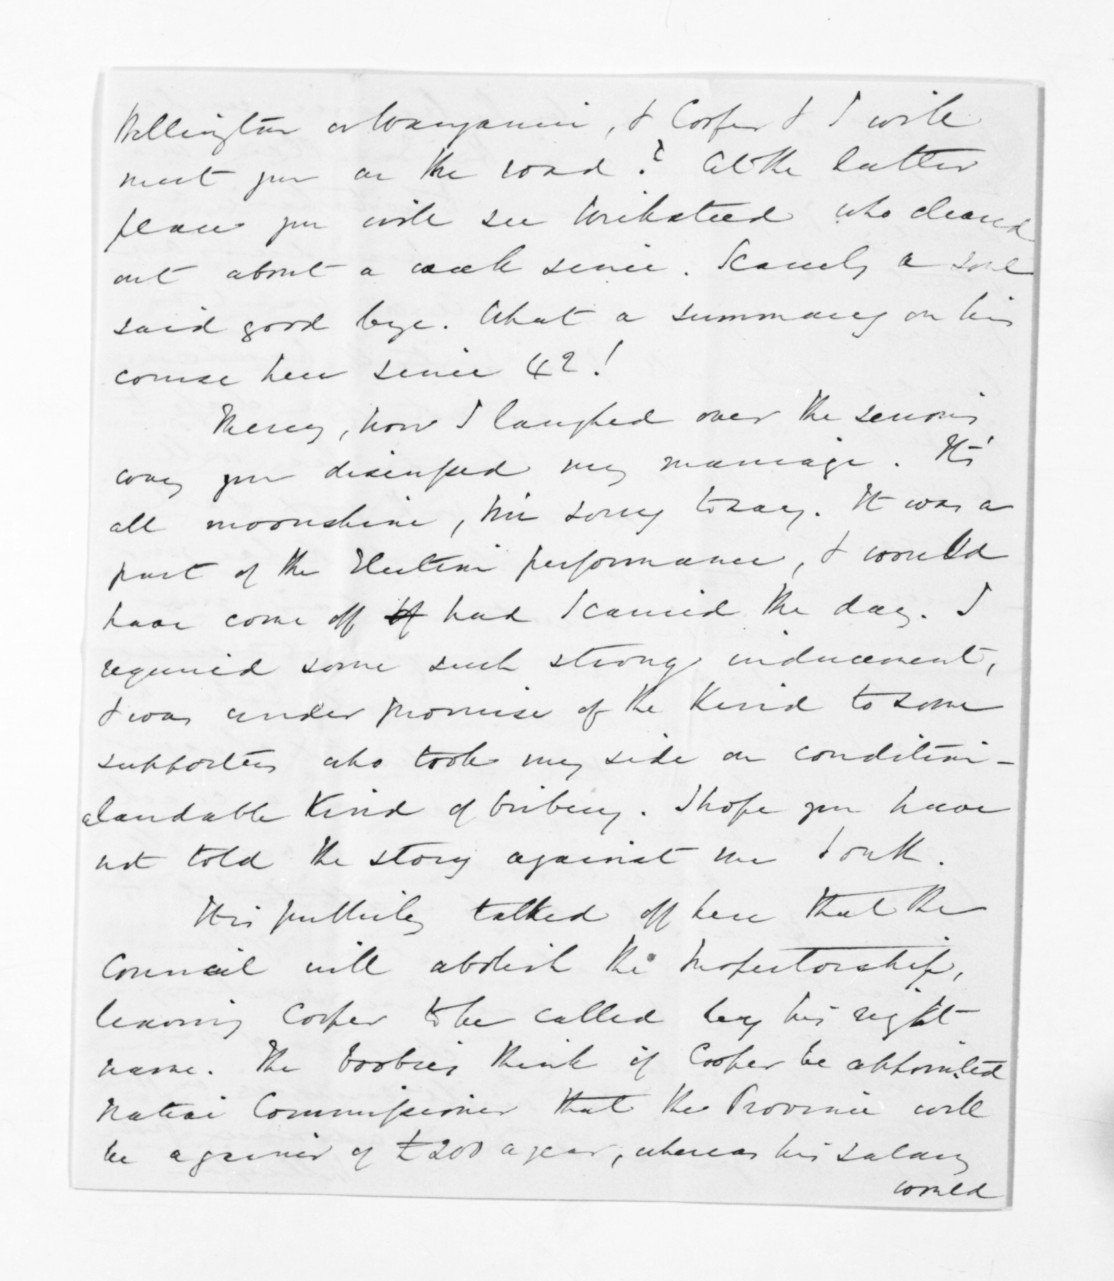 Wellington or Wanganui, & Cooper & I will
meet you on the road? At the latter
place you will see Wicksteed who cleared
out about a week since. Scarcely a soul
said good bye. What a summary on his
course here since 42!
Mercy, how I laughed over the serious
way you discussed my marriage. It's
all moonshine, I'm sorry to say. It was a
part of the Election performance, & would
have come off if had I carried the day. I
required some such strong inducement,
& was under promise of the kind to some
supporters who took my side on condition -
a laudable kind of bribery. I hope you have
not told the story against me South.
It is publicly talked of here that the
Council will abolish the Inspectorship,
leaving Cooper to be called by his right
name. The boobies think if Cooper be appointed
Native Commissioner that the Province will
be a gainer of £200 a year, whereas his salary
would